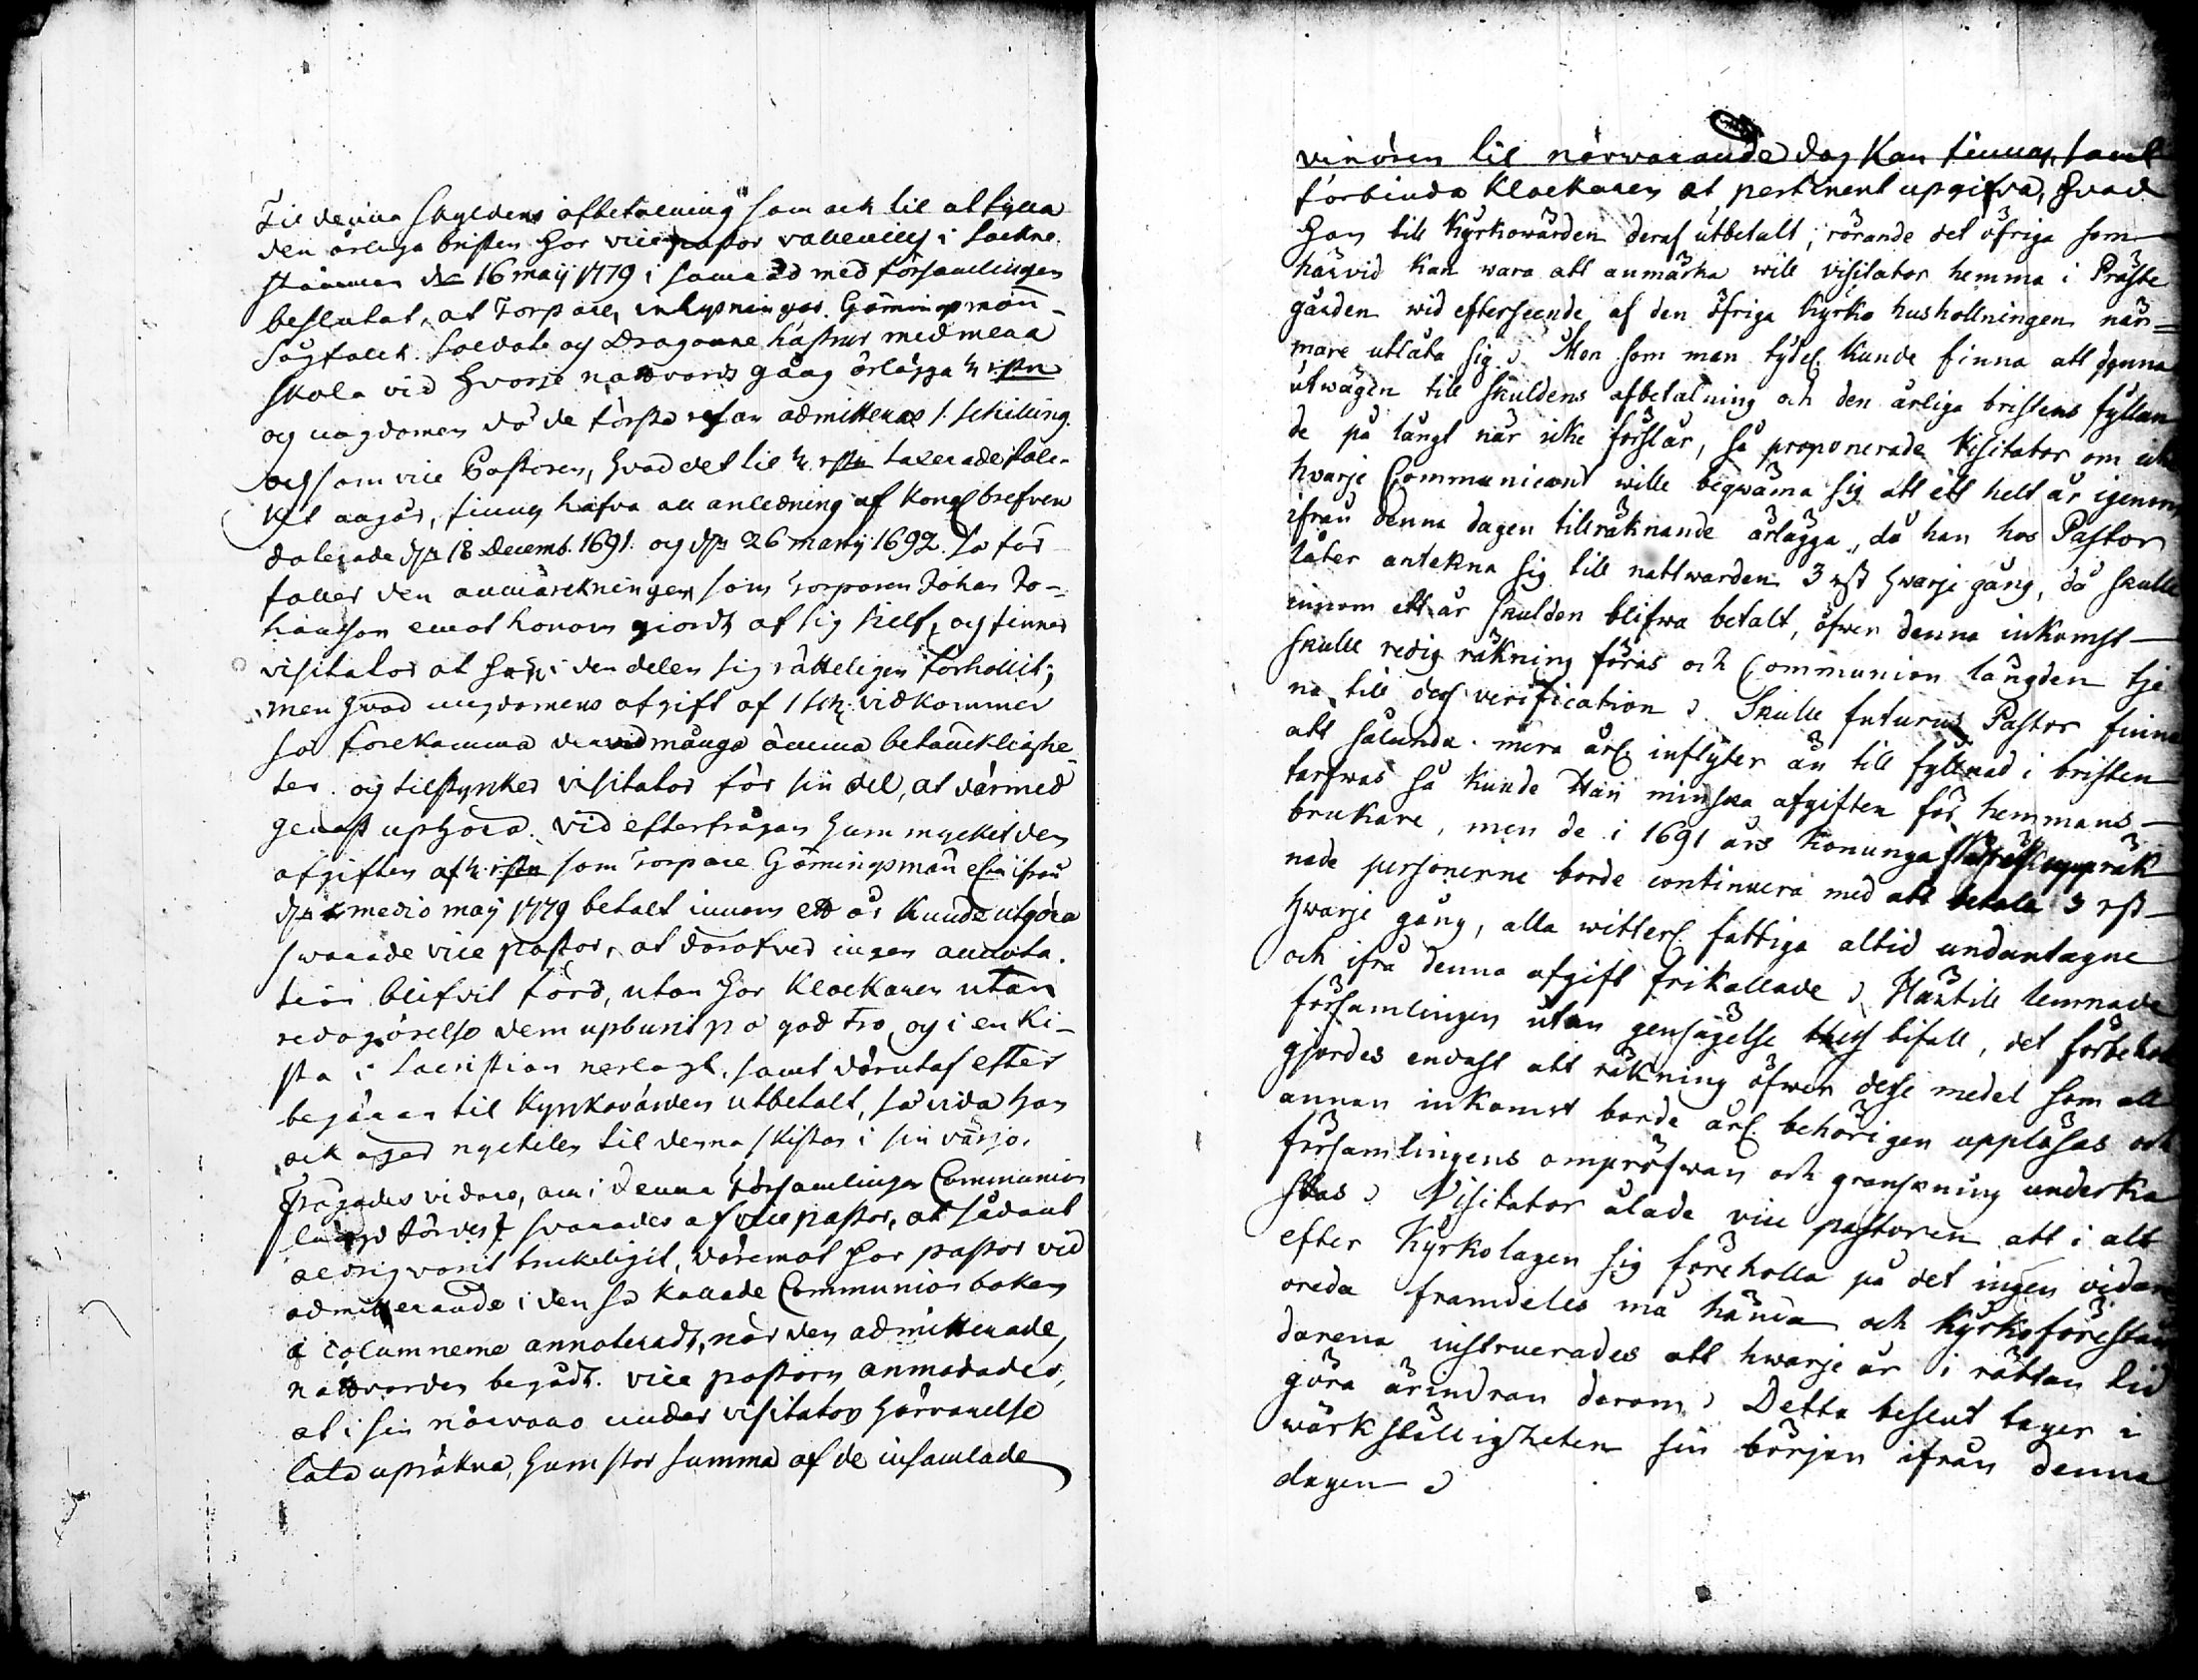 Til denna skyldens afbetalning som ock til at fylla
den årliga bristen har vice pastor Vallenius i Sockne-
stämman d. 16 maij 1779 i samråd med församlingen
beslutat, at Torpare, inhysningar Gärningsmän
Lögfolck Soldate og Dragoune hustrur med mera
skola vid hvarje nattvards gång ärlägga ½ rst
og ungdomen då de första resan admitteras 1 schilling.
och som vice Pastoren, hvad det til ½ rst taxerade fol-
ket angår, finnes hafva all anledning af Kongl brefven
daterade d. 18 Decemb. 1691 og d. 26 martij 1692. så för-
faller den anmärckningen som Torparen Johan Jo-
hansson emot honom giordt af sig sielf, og finner
visitator at han i den delen sig rätteligen förhollit;
men hvad ungdomens afgift af 1 sch. vidkommer
så förekomma därvid många ömma betänckelighe-
ter og tilstyrker visitator för sin del, at därmed
genast uphöra. Vid efterfrågan hum mycket den
afgiften af ½ rst som Torpare Gärningsmän etc ifrån
d. medio maij 1779 betalt innom ett år kunde utgöra
swarade vice pastor, at därofver ingen annota-
tion blifvit förd, utan har Klockaren utan
redogörelse dem upburit på god tro og i en Ki-
sta i Sacristian nerlagt, samt därutaf efter
begäran til Kyrkovärden utbetalt, så vida han
ock äger nyckelen til denna Kistan i sin värjo.
Frågades vidare, om i denna församlingen Communion
längd föres? svarades af vice pastor, at sådant
aldrig varit brukeligit, däremot har pastor vid
admitterande i den så kallade Communion boken
i columnerne annoteradt, när den admitterade,
nattvarden begådt. vice pastorn anmodades,
at i sin närvaro under visitators härvarelse
låta upräkna, hum stor summa af de insamlade
vinören til närvarande dag kan finnas, samt
förbinda Klockaren at pertinent upgifva, hvad
han till Kyrkowärden deraf utbetalt; rörande det öfriga som
härvid kan wara att anmärka will visitator hemma i Präste
gården wid efterseende af den öfriga Kyrko hushollningen när=
mare utlåta sig. Men som man tydel. kunde finna att denna
utwägen till skuldens afbetalning och den årliga bristens fyllan
de på långt när icke förslår, så proponerade Visitator om icke
hvarje Communicant wille beqwäma sig att ett helt år igenom
ifrån denna dagen tillräknande ärlägga, då han hos Pastor
låter antekna sig till nattwarden 3 rst hwarje gång, då skulle
innom ett år skulden blifwa betalt, öfwer denna inkomst
skulle redig räkning föras och Communion längden tje
na till dess verification. Skulle futurus Pastor finna
att sålunda mera årl. inflyter än till fyllnad i bristen
tarfwas så kunde Han minska afgiften för hemmans-
brukare, men de i 1691 års Konunga uppräk
nade personerne borde continuera med att betala 3 rst
hwarje gång, alla witterl. fattiga altid undantagne
och ifrå denna afgift frikallade. Härtill lemnade
församlingen utan gensägelse thess bifall, det förbehåll
gjordes endast att räkning öfwer desse medel som all
annan inkomst borde årl. behörigen uppläsas och
församlingens ompröfwan och granskning underka
stas. Visitator ålade vice pastoren att i alt
efter Kyrkolagen sig föreholla på det ingen vidare
oreda framdeles må hända och Kyrkoförestån
darena instruerades att hwarje år i rättan tid
göra ärindran derom. Detta beslut tager i
wärkställigheten sin början ifrån denna
dagen